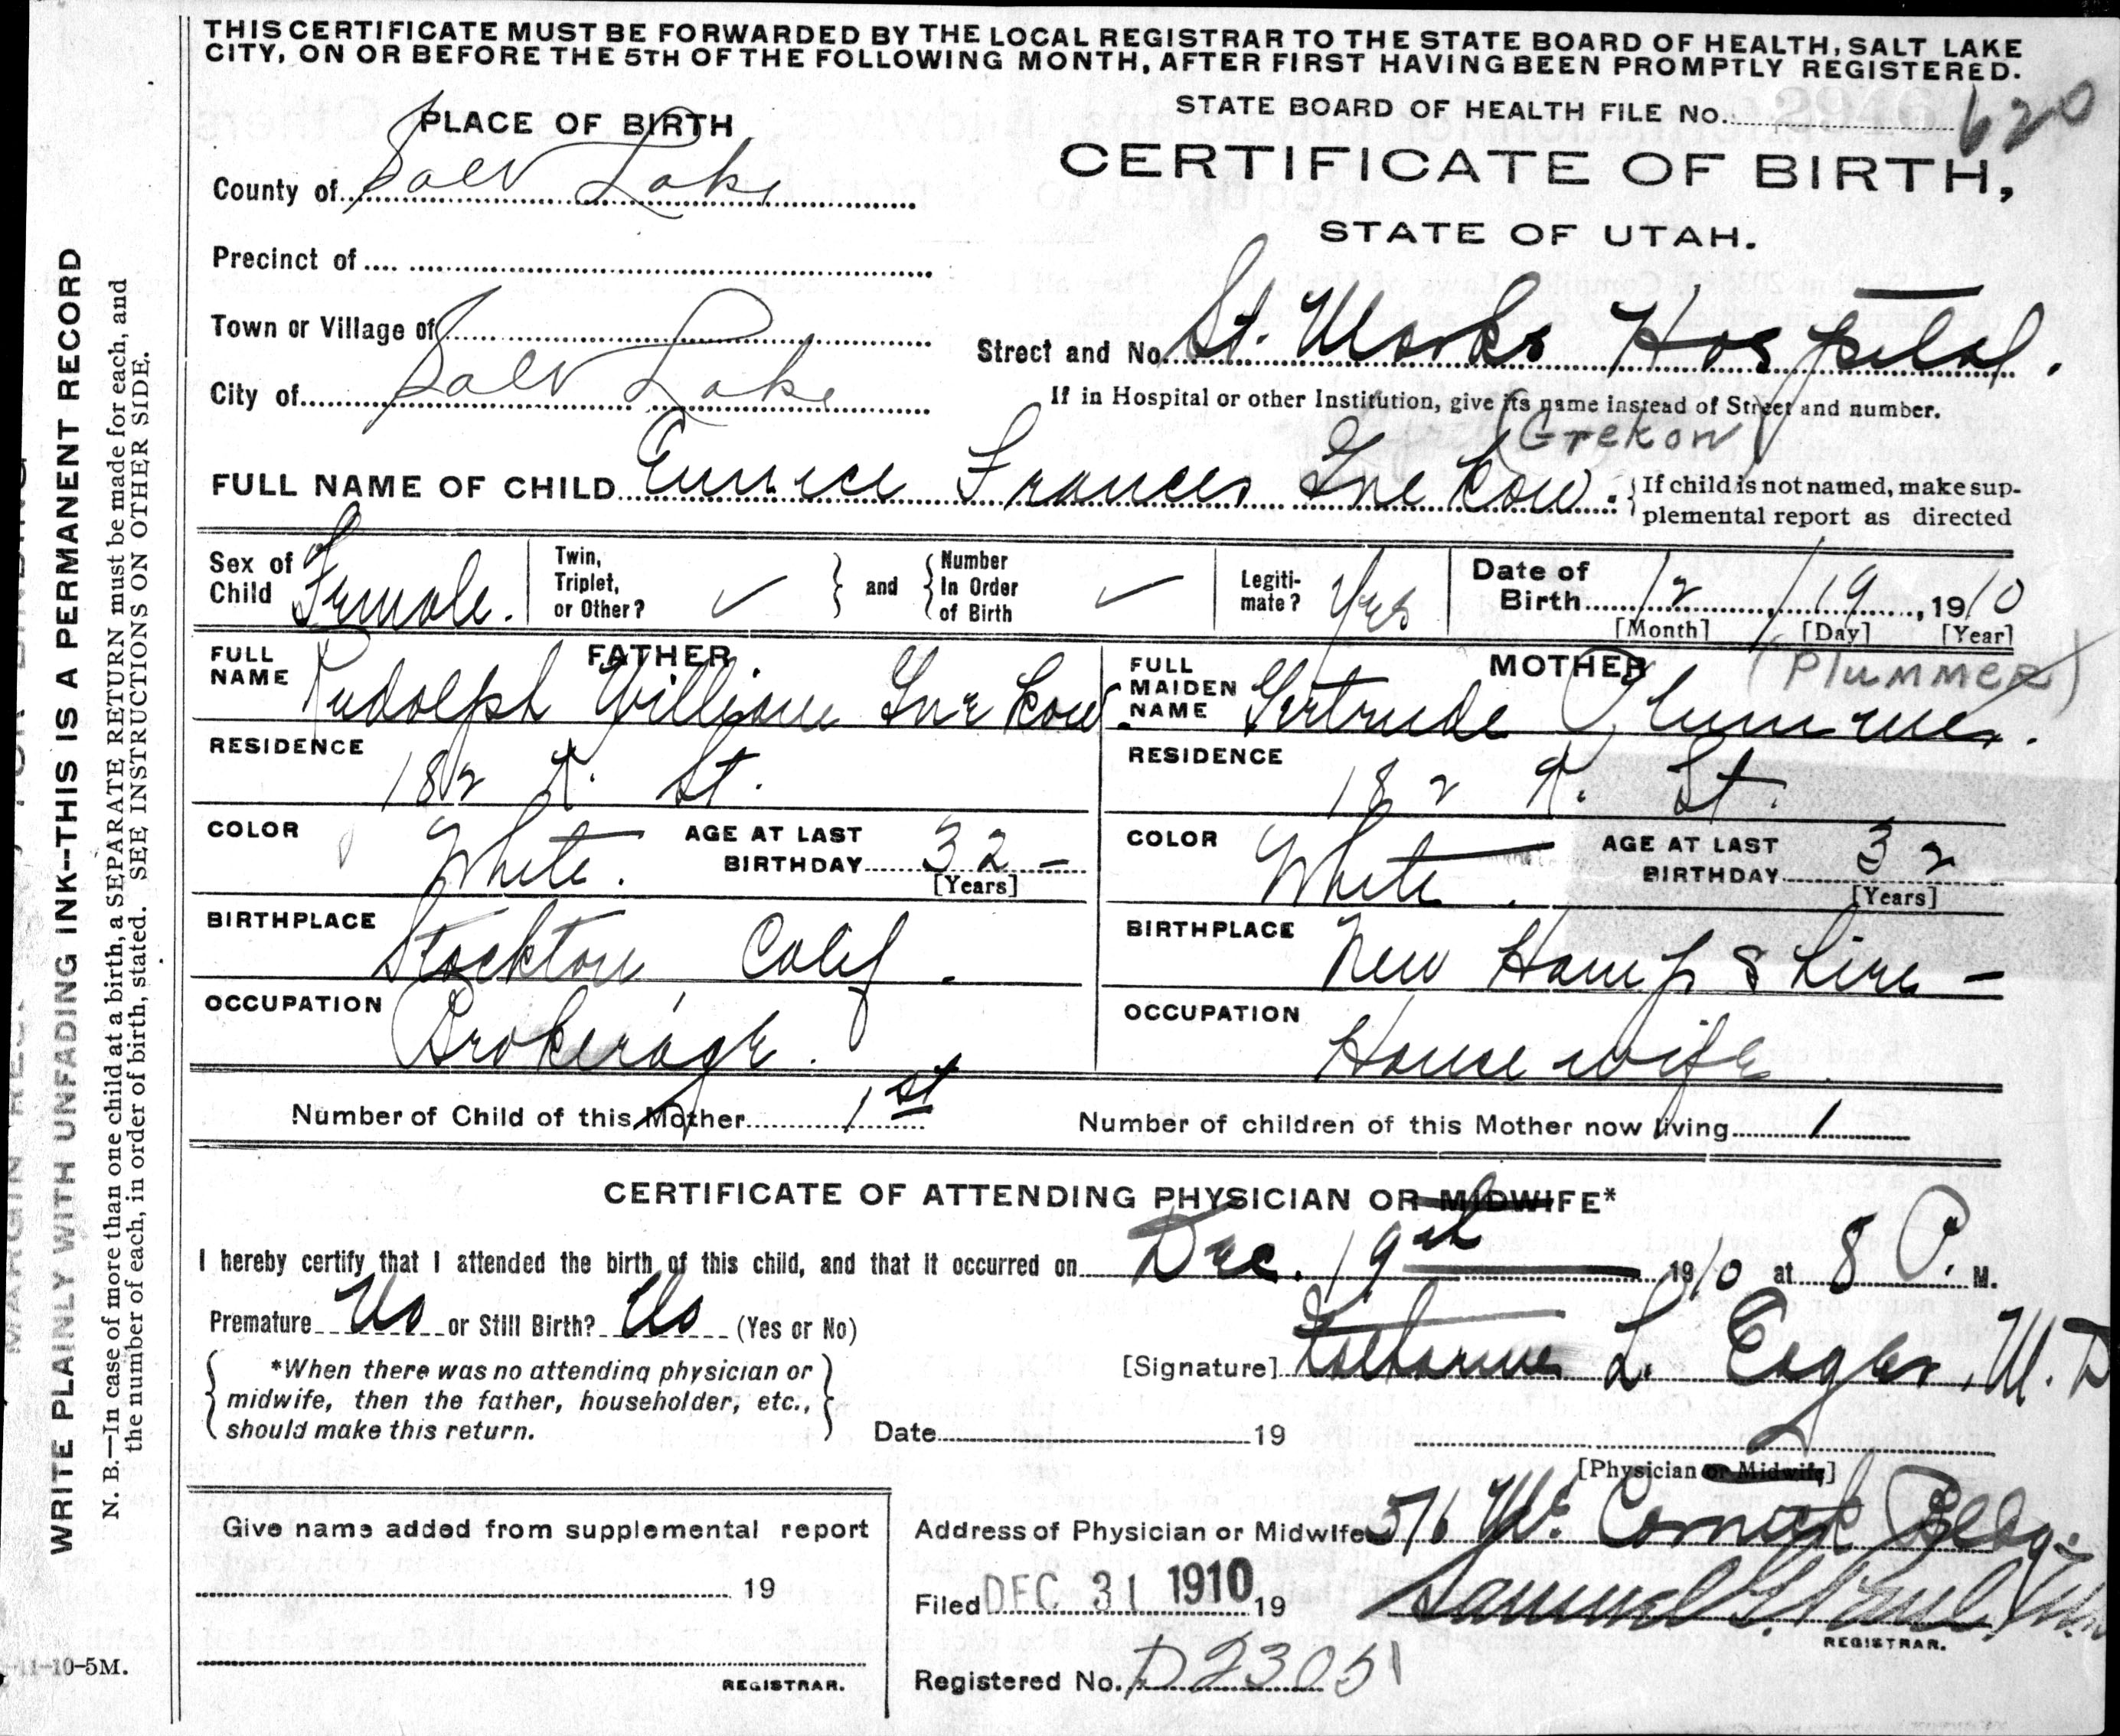 THIS CERTIFICATE MUST BE FORWARDED BY THE LOCAL REGISTRAR TO THE STATE BOARD OF HEALTH, SALT LAKE
CITY, ON OR BEFORE THE 5TH OF THE FOLLOWING MONTH, AFTER FIRST HAVING BEEN PROMPTLY REGISTERED.
STATE BOARD OF HEALTH FILE No. 620
PLACE OF BIRTH
CERTIFICATE OF BIRTH,
STATE OF UTAH.
County of Salt Lake
Precinct of
Town or Village of
Street and No. St. Marks Hospital.
City of Salt Lake
If in Hospital or other Institution, give its name instead of Street and number.
(Grekow)
FULL NAME OF CHILD Eunice Frances Grekow. {If child is not named, make sup-
plemental report as directed
Sex of Child Female.
Twin, Triplet, or Other? ✓ } and { Number In Order of Birth ✓
Legiti-
mate? Yes
Date of Birth 12, 19, 1910
[Month] [Day] [Year]
FATHER
FULL NAME Rudolph William Grekow.
RESIDENCE 182 K. St.
COLOR White. AGE AT LAST BIRTHDAY 32 –
[Years]
BIRTHPLACE Stockton Calif.
OCCUPATION Brokerage.
MOTHER (Plummer)
FULL MAIDEN NAME Gertrude Plummer.
RESIDENCE 182 K. St.
COLOR White. AGE AT LAST BIRTHDAY 32
[Years]
BIRTHPLACE New Hampshire –
OCCUPATION House wife
Number of Child of this Mother 1st Number of children of this Mother now living 1
CERTIFICATE OF ATTENDING PHYSICIAN OR MIDWIFE*
I hereby certify that I attended the birth of this child, and that it occurred on Dec. 19th 1910 at 8 P. M.
Premature No or Still Birth? No (Yes or No)
*When there was no attending physician or
midwife, then the father, householder, etc.,
should make this return.
[Signature] L. M.D
Date 19
[Physician or Midwife]
Give name added from supplemental report
19
REGISTRAR.
Address of Physician or Midwife 516 Mc Cornick Bldg.
Filed DEC 31 1910 19 Samuel G. Paul
REGISTRAR.
Registered No. D23051
11-10-5M.
WRITE PLAINLY WITH UNFADING INK--THIS IS A PERMANENT RECORD
N. B.—In case of more than one child at a birth, a SEPARATE RETURN must be made for each, and
the number of each, in order of birth, stated. SEE INSTRUCTIONS ON OTHER SIDE.